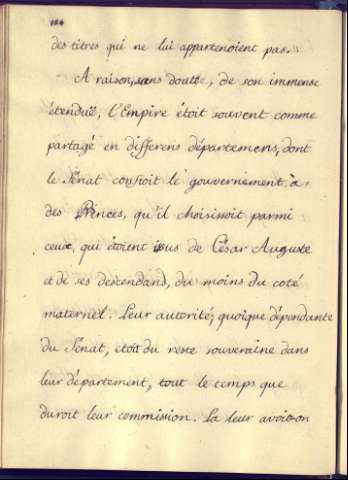 124
des titres qui ne lui appartenoient pas.
A raison, sans doutte, de son immense
étenduë, l'Empire étoit souvent comme
partagé en differens départemens, dont
le Sénat confioit le gouvernement à
des Princes, qu'il choisissoit parmi
ceux, qui étoient issus de César Auguste
et de ses descendand, du moins du coté
maternel. Leur autorité, quoique dépendante
du Sénat, etoit du reste souveraine dans
leur département, tout le temps que
duroit leur commission. La leur avoit-on